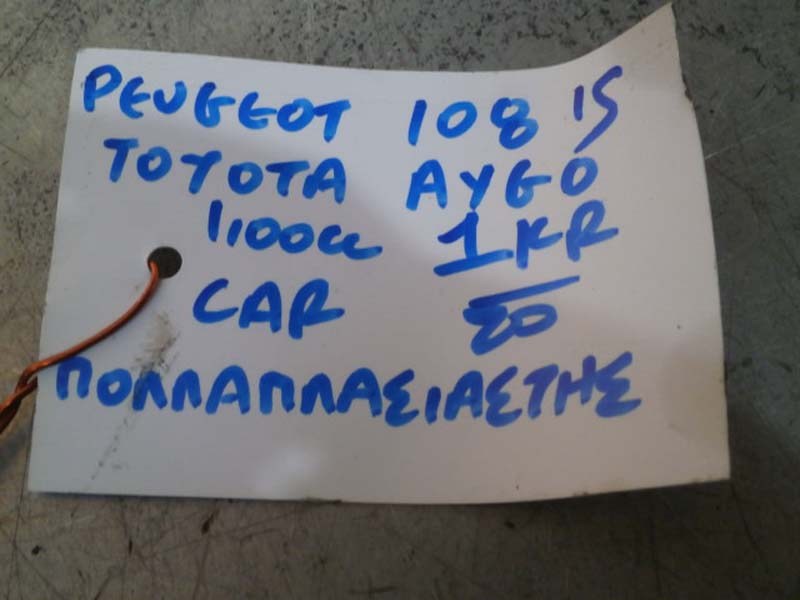 PEUGEOT 108 15
TOYOTA AYGO
1,100cc 1KR
CAR 20
ΠΟΛΛΑΠΛΑΣΙΑΣΤΗΣ